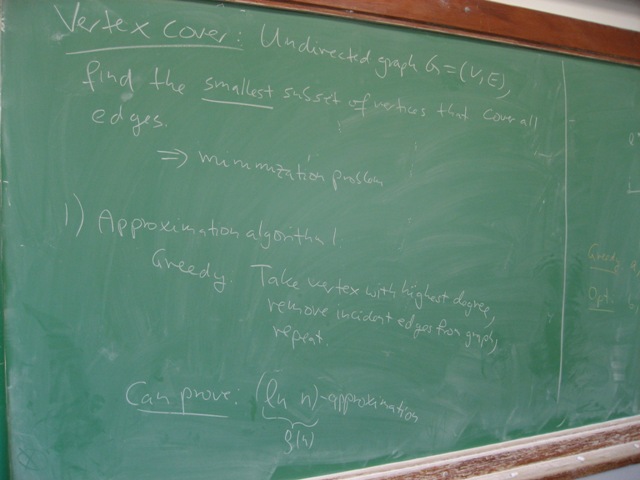 Vertex cover: Undirected graph G=(V,E),
find the smallest subset of vertices that cover all
edges.
=> minimization problem
1) Approximation algorithm 1.
Greedy. Take vertex with highest degree,
remove incident edges from graph,
repeat.
Can prove: (ln n)-approximation
ρ(n)
Greedy
Opt.